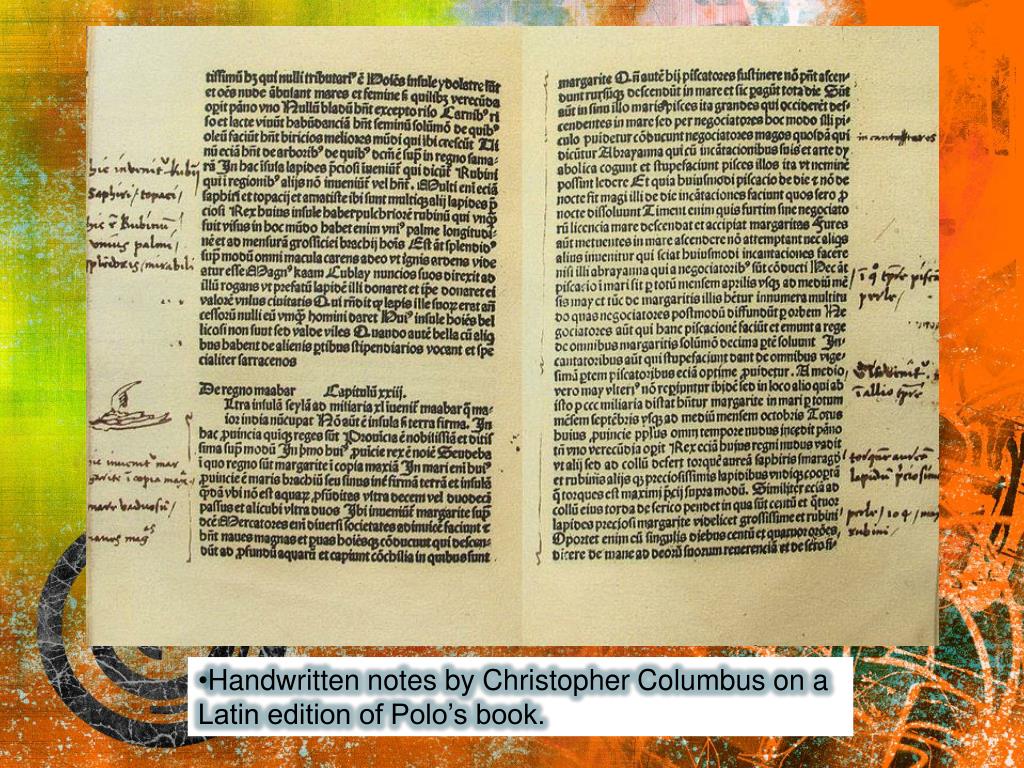 tissimū bȝ qui nulli tributari⁹ ē Hoiēs insule ydolatre sūt
et oēs nude ābulant mares et femine sȝ quilibȝ verecūda
opit pāno vno Nullū bladū hn̄t excepto riso Carnibꝰ ri
so et lacte viuūt habūdanciā hn̄t seminū solūmō de quibꝰ
oleū faciūt hn̄t biricios meliores mūdi qui ibi crescūt
nū eciā hn̄t de arboribꝰ de quibꝰ dcm̄ ē sup̄ in regno sama-
rā In hac īsula lapides p̄ciosi īueniūt qui dicūt Rubini
qui ī regionibꝰ alijs nō inueniūt vel hn̄t. Multi eni eciā
saphiri et topacij et amatiste ibi sunt multiqȝ alij lapides p̄
ciosi Rex huius insule habet pulchriorē rubinū qui vnqȝ
fuit visus in hoc mūdo habet enim vniꝰ palme longitudi-
nē et ad mensurā grossiciei brachij hoīs Est āt splendidꝰ
sup̄ modū omni macula carens adeo vt ignis ardens vide
atur esse Magnꝰ kaam Cublay nuncios suos direxit ad
illū rogans vt prefatū lapidē illi donaret et ip̄e donaret ei
valorē vniꝰ ciuitatis Qui rn̄dit qȝ lepis ille suoȝ erat an̄
cessorū nulli eū vnqȝ homini daret Huiꝰ insule hoiēs bel
licosi non sunt sed valde viles Quando autē bella cū aliq̄
bus habent de alienis ꝑtibus stipendiarios vocant et spe
cialiter sarracenos
De regno maabar Capitulū xxiij.
Ltra insulā seylā ad miliaria xl īuenit̄ maabar q̄ ma-
ior india nūcupat̄ Nō aūt ē insula sȝ terra firma. In
hac ꝓuincia quiqȝ reges sūt Prouincia ē nobilissīa et ditis
sima sup̄ modū In pͥmo huiꝰ ꝓuicie rex ē noīe Seudeba
ī quo regno sūt margarite ī copia maxīa In mari eni huiꝰ
ꝓuincie ē maris brachiū seu sinus int̄ firmā terrā et insulā
q̄dā vbi nō est aquaȝ ꝓfūditas vltra decem vel duodecī
passus et alicubi vltra duos Ibi inueniūt margarite sup̄
dc̄e Mercatores eni diuersi societates adinuicē faciunt ⁊
hn̄t naues magnas et ꝑuas hoiēsqȝ cōducunt qui descen-
dūt ad ꝓfundū aquarū et capiunt cōchilia in quibus sunt
hic invenit̄ Rubi
saphiri / topaci /
hic ē Rubinū
vnius palmi /
splēdēs / mirabili
hic inuenit̄ mar
garite ī copia maxīa
mare vadosū /
naues mag
margarite Qn̄ autē hij piscatores sustinere nō pn̄t ascen-
dunt rursūqȝ descendūt in mare et sic ꝑagūt tota die Sūt
aūt in sinu illo maris pisces ita grandes qui occiderēt des-
cendentes in mare sed per negociatores hoc modo illi pi-
culo ꝓuidetur cōducunt negociatores magos quosdā qui
dicūtur Abrayanna qui cū incātacionibus suis et arte dy
abolica cogunt et stupefaciunt pisces illos ita vt neminē
possint ledere Et quia huiusmodi piscacio de die ⁊ nō de
nocte fit magi illi de die incātaciones faciunt quos sero ꝓ
nocte dissoluunt Timent enim quis furtim sine negociato
rū licencia mare descendat et accipiat margaritas Fures
aūt metuentes in mare ascendere nō attemptant nec aliqs
alius inuenitur qui sciat huiusmodi incantaciones facere
nisi illi abrayanna qui a negociatoribꝰ sūt cōducti Hec āt
piscacio ī mari fit ꝑ totū mensem aprilis vsqȝ ad mediū mē
sis may et tūc de margaritis illis hētur innumera multitu
do quas negociatores postmodū diffundūt ꝑ orbem Ne
gociatores aūt qui hanc piscacionē faciūt et emunt a rege
de omnibus margaritis solūmō decima ꝑtē soluunt In-
cantatoribus aūt qui stupefaciunt dant de omnibus vige-
simā ꝑtem piscatoribus eciā optime ꝓuidetur. A medio
vero may vlteriꝰ nō reꝑiuntur ibidē sed in loco alio qui ab
isto ꝑ ccc miliaria distat hn̄tur margarite in mari ꝑ totum
mēsem septēbris vsqȝ ad mediū mensem octobris Totus
huius ꝓuincie pplūs omni tempore nudus incedit pāno
tn̄ vno verecūdia opit Rex eciā huius regni nudus vadit
vt alij sed ad collū defert torquē aureū saphiris smaragdꝰ
et rubinis alijsqȝ preciosissimis lapidibus vndiqȝ coopta
q̄ torques est maximi p̄cij supra modū. Similiter eciā ad
collū eius torda de serico pendet in qua sūt centū et q̄tuor
lapides preciosi margarite videlicet grossissime et rubini
Oportet enim eū singulis diebus centū et quatuor orōes
dicere de mane ad deorū suorum reuerenciā et de sero si-
in cantatores
perle /
torquē aureū
lapidū p̄ciosiss
perle / 104 / may
rubini /
•Handwritten notes by Christopher Columbus on a
Latin edition of Polo’s book.